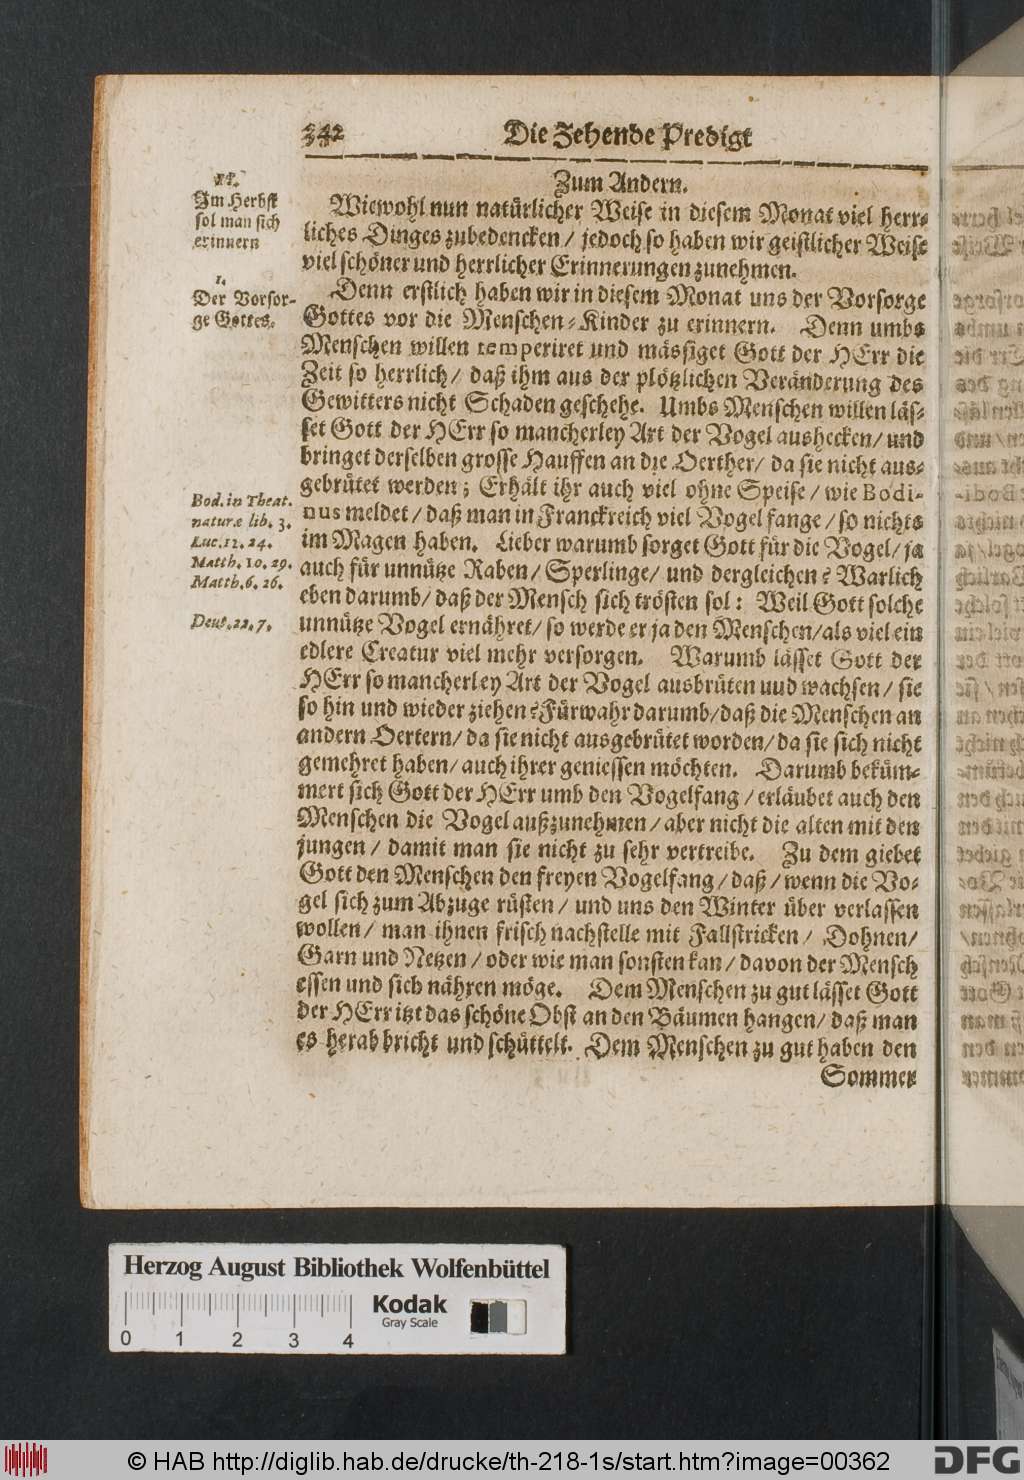 342 Die Zehende Predigt
Zum Andern.
II.
Im Herbst
sol man sich
erinnern
Wiewohl nun natürlicher Weise in diesem Monat viel herr-
liches Dinges zubedencken / jedoch so haben wir geistlicher Weise
viel schöner und herrlicher Erinnerungen zunehmen.
1.
Der Vorsor-
ge Gottes.
Denn erstlich haben wir in diesem Monat uns der Vorsorge
Gottes vor die Menschen-Kinder zu erinnern. Denn umbs
Menschen willen temperiret und mässiget Gott der HErr die
Zeit so herrlich / daß ihm aus der plötzlichen Veränderung des
Gewitters nicht Schaden geschehe. Umbs Menschen willen läs-
set Gott der HErr so mancherley Art der Vogel aushecken / und
bringet derselben grosse Hauffen an die Oerther / da sie nicht aus-
gebrütet werden; Erhält ihr auch viel ohne Speise / wie Bodi-
nus meldet / daß man in Franckreich viel Vogel fange / so nichts
im Magen haben. Lieber warumb sorget Gott für die Vogel / ja
auch für unnütze Raben / Sperlinge / und dergleichen? Warlich
eben darumb / daß der Mensch sich trösten sol: Weil Gott solche
unnütze Vogel ernähret / so werde er ja den Menschen / als viel ein
edlere Creatur viel mehr versorgen. Warumb lässet Gott der
HErr so mancherley Art der Vogel ausbrüten uud wachsen / sie
so hin und wieder ziehen? Fürwahr darumb / daß die Menschen an
andern Oertern / da sie nicht ausgebrütet worden / da sie sich nicht
gemehret haben / auch ihrer geniessen möchten. Darumb beküm-
mert sich Gott der HErr umb den Vogelfang / erläubet auch den
Menschen die Vogel außzunehmen / aber nicht die alten mit den
jungen / damit man sie nicht zu sehr vertreibe. Zu dem giebet
Gott den Menschen den freyen Vogelfang / daß / wenn die Vo-
gel sich zum Abzuge rüsten / und uns den Winter über verlassen
wollen / man ihnen frisch nachstelle mit Fallstricken / Dohnen /
Garn und Netzen / oder wie man sonsten kan / davon der Mensch
essen und sich nähren möge. Dem Menschen zu gut lässet Gott
der HErr itzt das schöne Obst an den Bäumen hangen / daß man
es herab bricht und schüttelt. Dem Menschen zu gut haben den
Sommer
Bod. in Theat.
naturæ lib. 3.
Luc. 12. 24.
Matth. 10. 29.
Matth. 6. 26.
Deut. 22. 7.
Herzog August Bibliothek Wolfenbüttel
Kodak
Gray Scale
0 1 2 3 4
© HAB http://diglib.hab.de/drucke/th-218-1s/start.htm?image=00362
DFG